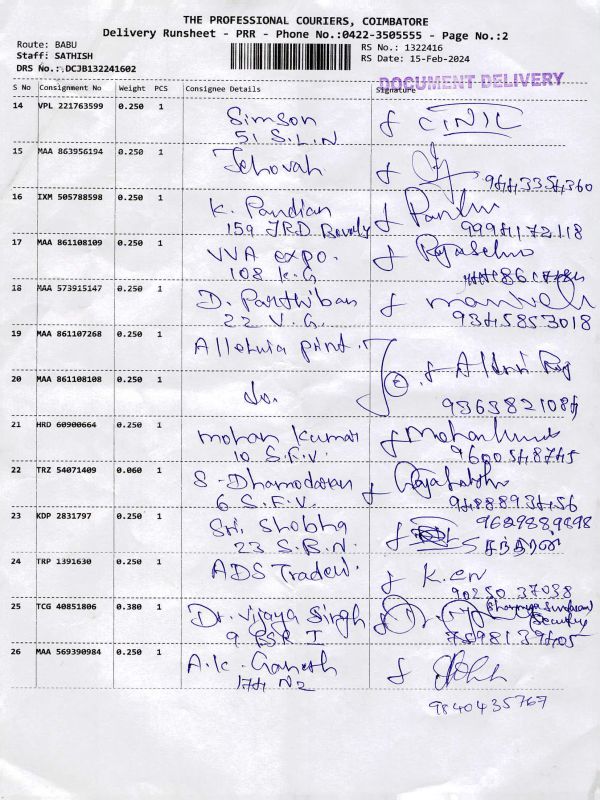 THE PROFESSIONAL COURIERS, COIMBATORE
Delivery Runsheet - PRR - Phone No.:0422-3505555 - Page No.:2
Route: BABU
Staff: SATHISH
DRS No.:.DCJB132241602
RS No.: 1322416
RS Date: 15-Feb-2024
DOCUMENT DELIVERY
S No Consignment No Weight PCS Consignee Details Signature
14 VPL 221763599 0.250 1
Simson
51 S.L.N
15 MAA 863956194 0.250 1
Jehovah
9443354360
16 IXM 505788598 0.250 1
K. Pandian
159 J.R.D. 9994172118
17 MAA 861108109 0.250 1
VVA expo.
108 K.G
18 MAA 573915147 0.250 1
D. Parthiban
22 V.G. 9345853018
19 MAA 861107268 0.250 1
Alleluia print.
20 MAA 861108108 0.250 1
do. 2
9363821084
21 HRD 60900664 0.250 1
mohan kumar
10 S.F.V. 9600548745
22 TRZ 54071409 0.060 1
S. Dhamodaran
6 S.F.V. 9488893456
23 KDP 2831797 0.250 1
Sri Shobha 9629889898
23 S.B.N.
24 TRP 1391630 0.250 1
ADS Tradew. K.en
90250 37038
25 TCG 40851806 0.380 1
Dr. Vijaya Singh Dr.
Security
7598139405
26 MAA 569390984 0.250 1
A.K. Ganesh
174 N2
9840435767